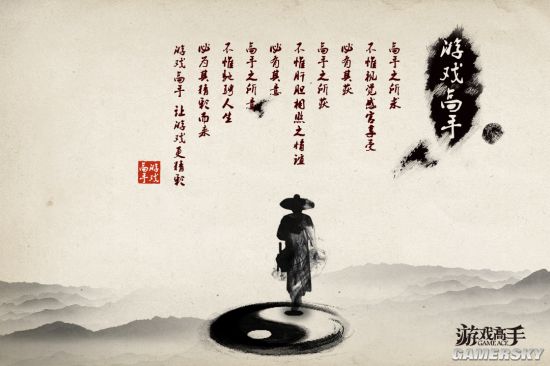 游戏高手
高手之所求
不惟视觉感官享受
必有其获
高手之所获
不惟肝胆相照之情谊
必有其意
高手之所意
不惟驰骋人生
必为其精彩而来
游戏高手 让游戏更精彩
游戏高手
游戏高手
GAME ACE
GAMERSKY